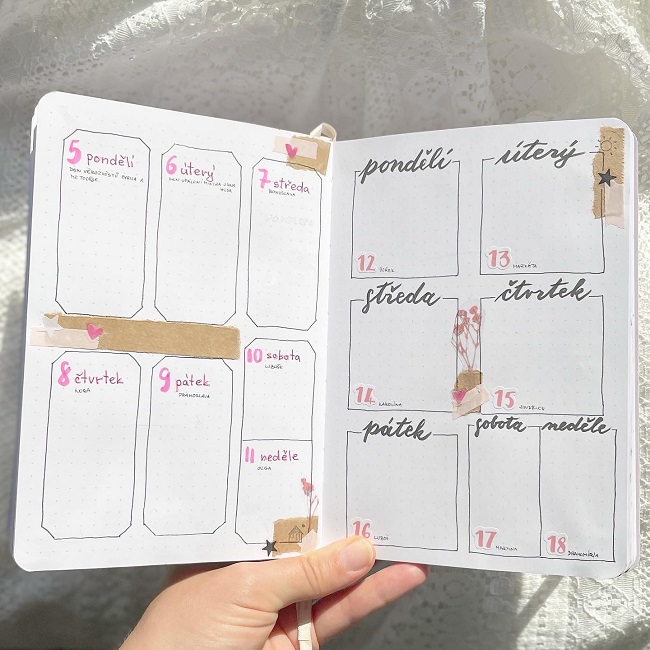 5 pondělí
DEN VĚROZVĚSTŮ CYRILA A
METODĚJE
6 úterý
DEN UPÁLENÍ MISTRA JANA
HUSA
7 středa
BOHUSLAVA
8 čtvrtek
NORA
9 pátek
DRAHOSLAVA
10 sobota
LIBUŠE
11 neděle
OLGA
pondělí
12 BOŘEK
úterý
13 MARKÉTA
středa
14 KAROLÍNA
čtvrtek
15 JINDŘICH
pátek
16 LUBOŠ
sobota
17 MARTINA
neděle
18 DRAHOMÍRA